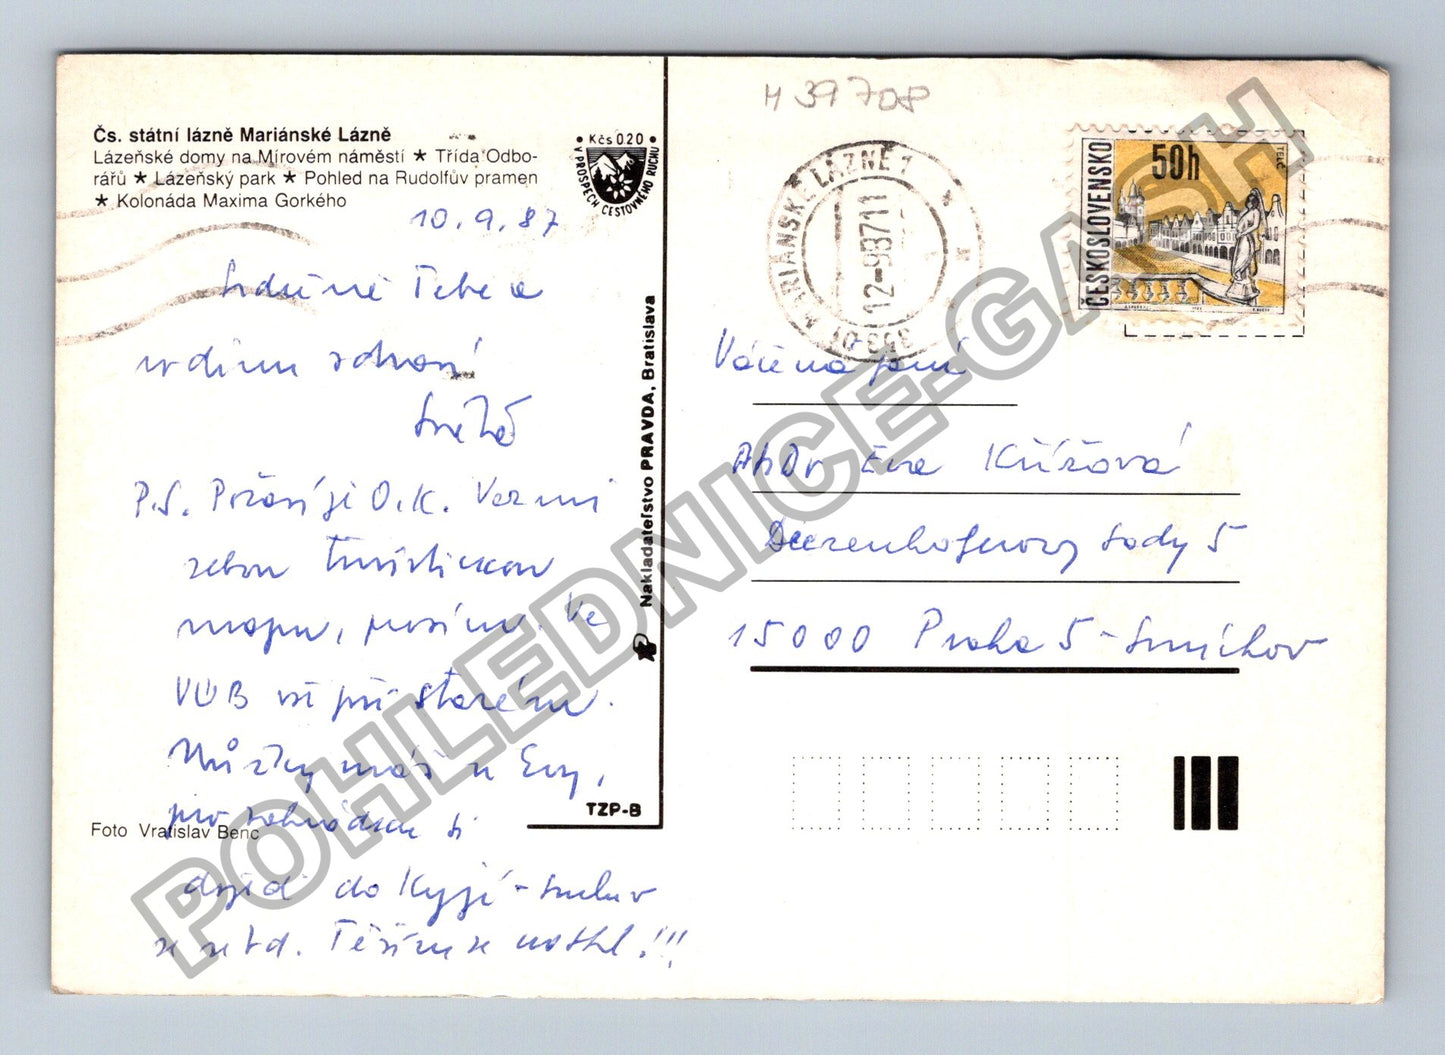 Čs. státní lázně Mariánské Lázně
Lázeňské domy na Mírovém náměstí ★ Třída Odbo-
rářů ★ Lázeňský park ★ Pohled na Rudolfův pramen
★ Kolonáda Maxima Gorkého
• Kčs 0,20 •
V PROSPĚCH CESTOVNÉHO RUCHU
10. 9. 87
Srdečně Tebe a
rodinu zdraví
P.S. Požasí je O.K. Vezmi
sebou turistickou
mapu, prosím. Ve
VÚB vsi při starém.
Nůžky máš u Evy,
pro zahrádku si
dojedi do Kyjí - smluv
se s
Těším se
!!!
Foto Vratislav Benc
TZP-B
Nakladateľstvo PRAVDA, Bratislava
M 39708
MARIÁNSKÉ LÁZNĚ 1
12.-9.87 11
353 01
ČESKOSLOVENSKO
50h
TELČ
Vážená paní
PhDr Eva Křížová
Dienzenhoferovy sady 5
15000 Praha 5 - Smíchov
POHLEDNICE-GASH